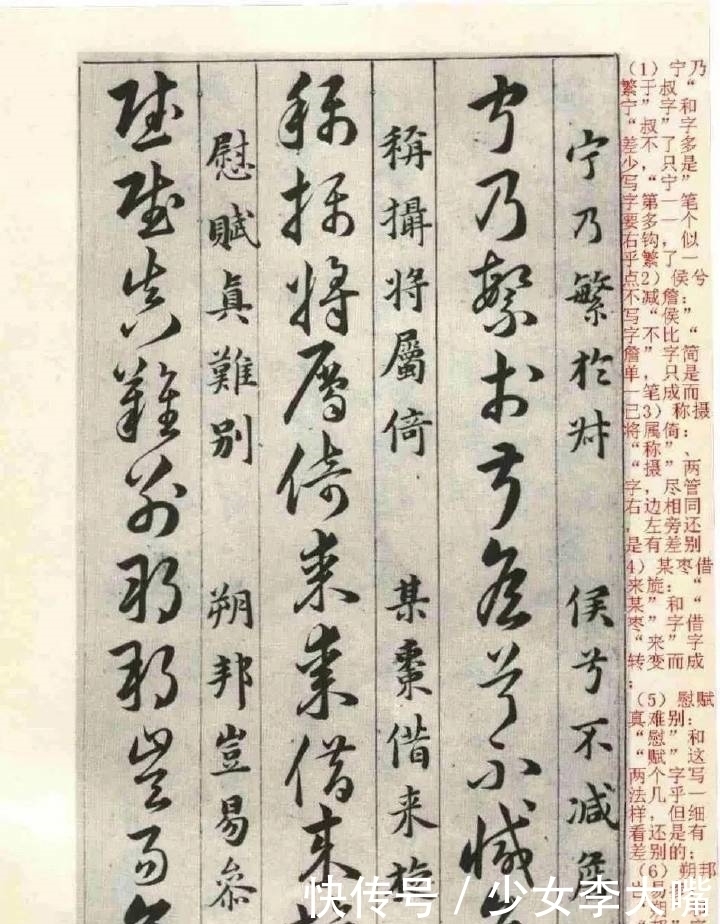 (1）宁乃
繁于叔“
宁”字和
“叔”字
差不了多
少，只是
写“宁”
字第一笔
要多一个
右钩，似
乎繁了一
点2）侯兮
不减詹：
写“侯”
字不比“
詹”字简
单，只是
一笔成而
已3）称摄
将属倚：
“称”、
“摄”两
字，尽管
右边相同
，左旁还
是有差别
4）某枣借
来旋：“
某”和“
枣”字借
“来”字
转变而成
；
（5）慰赋
真难别：
“慰”和
“赋”这
两个字写
法几乎一
样，但细
看还是有
差别的；
（6）朔邦
宁乃繁於叔 侯兮不减詹
宁乃繁於叔侯兮不减
稱攝将屬倚 某棗借来旋
稱攝将屬倚某棗借来
慰賦真難别 朔邦豈易參
慰賦真難别朔邦豈易
快传号／少女李大嘴